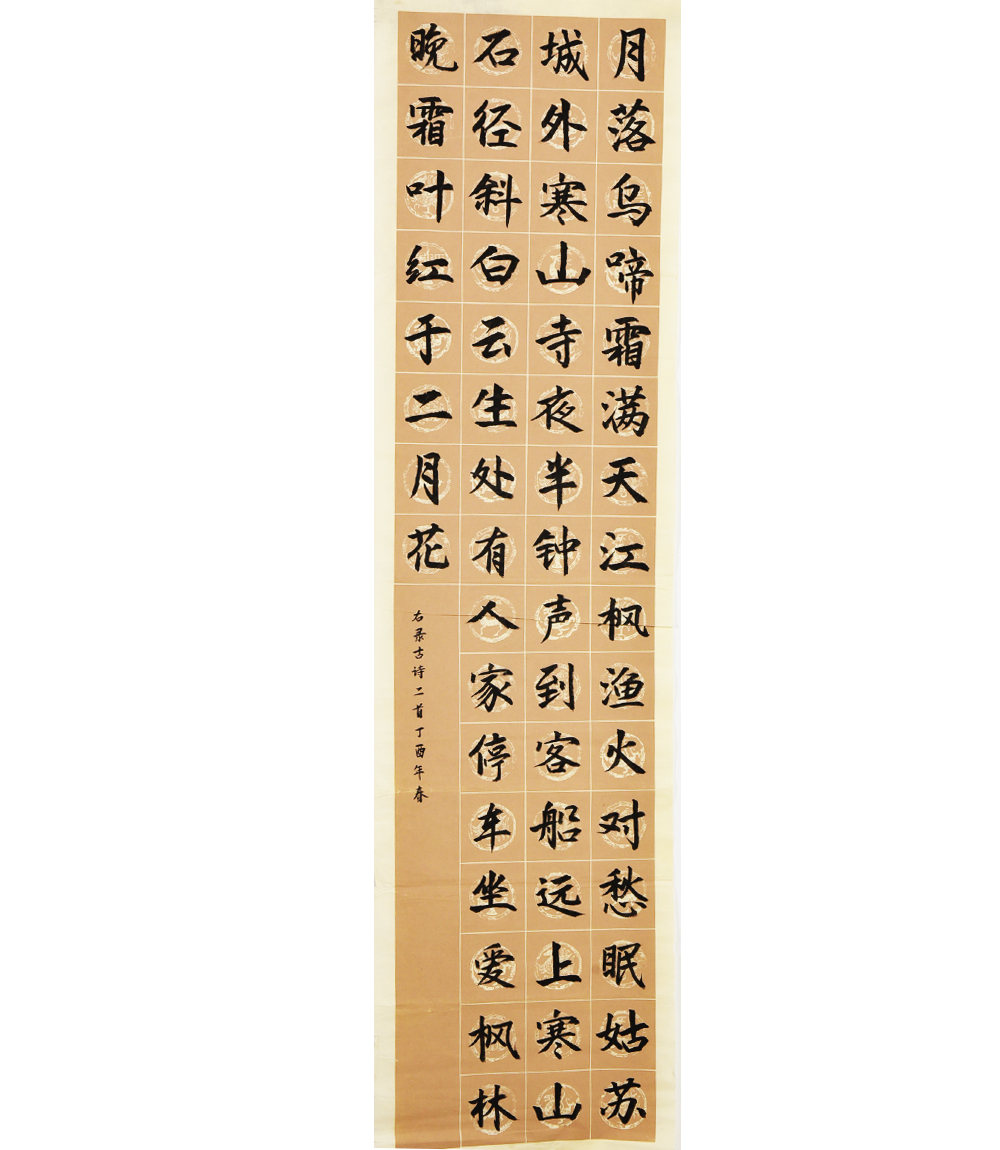 月落乌啼霜满天江枫渔火对愁眠姑苏
城外寒山寺夜半钟声到客船远上寒山
石径斜白云生处有人家停车坐爱枫林
晚霜叶红于二月花
右录古诗二首丁酉年春